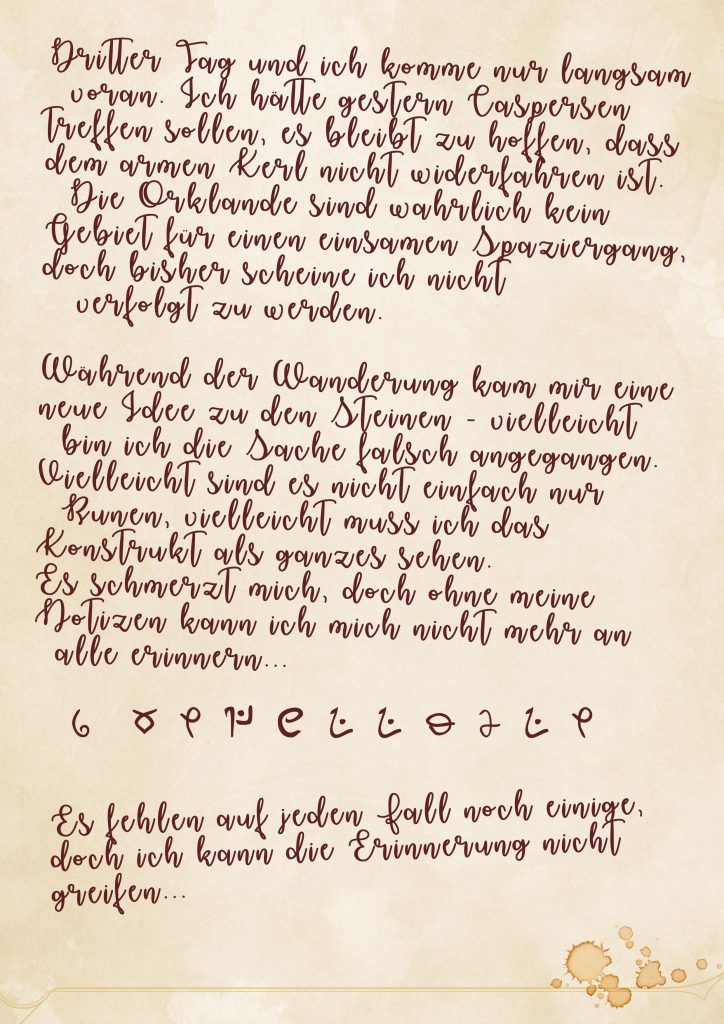 Dritter Tag und ich komme nur langsam
voran. Ich hätte gestern Caspersen
treffen sollen, es bleibt zu hoffen, dass
dem armen Kerl nicht widerfahren ist.
Die Orklande sind wahrlich kein
Gebiet für einen einsamen Spaziergang,
doch bisher scheine ich nicht
verfolgt zu werden.
Während der Wanderung kam mir eine
neue Idee zu den Steinen - vielleicht
bin ich die Sache falsch angegangen.
Vielleicht sind es nicht einfach nur
Runen, vielleicht muss ich das
Konstrukt als ganzes sehen.
Es schmerzt mich, doch ohne meine
Notizen kann ich mich nicht mehr an
alle erinnern...
Es fehlen auf jeden Fall noch einige,
doch ich kann die Erinnerung nicht
greifen...